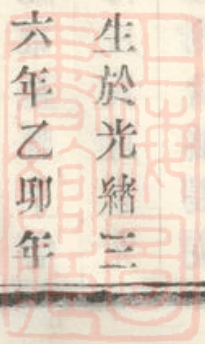 生於光緒三
六年乙卯年